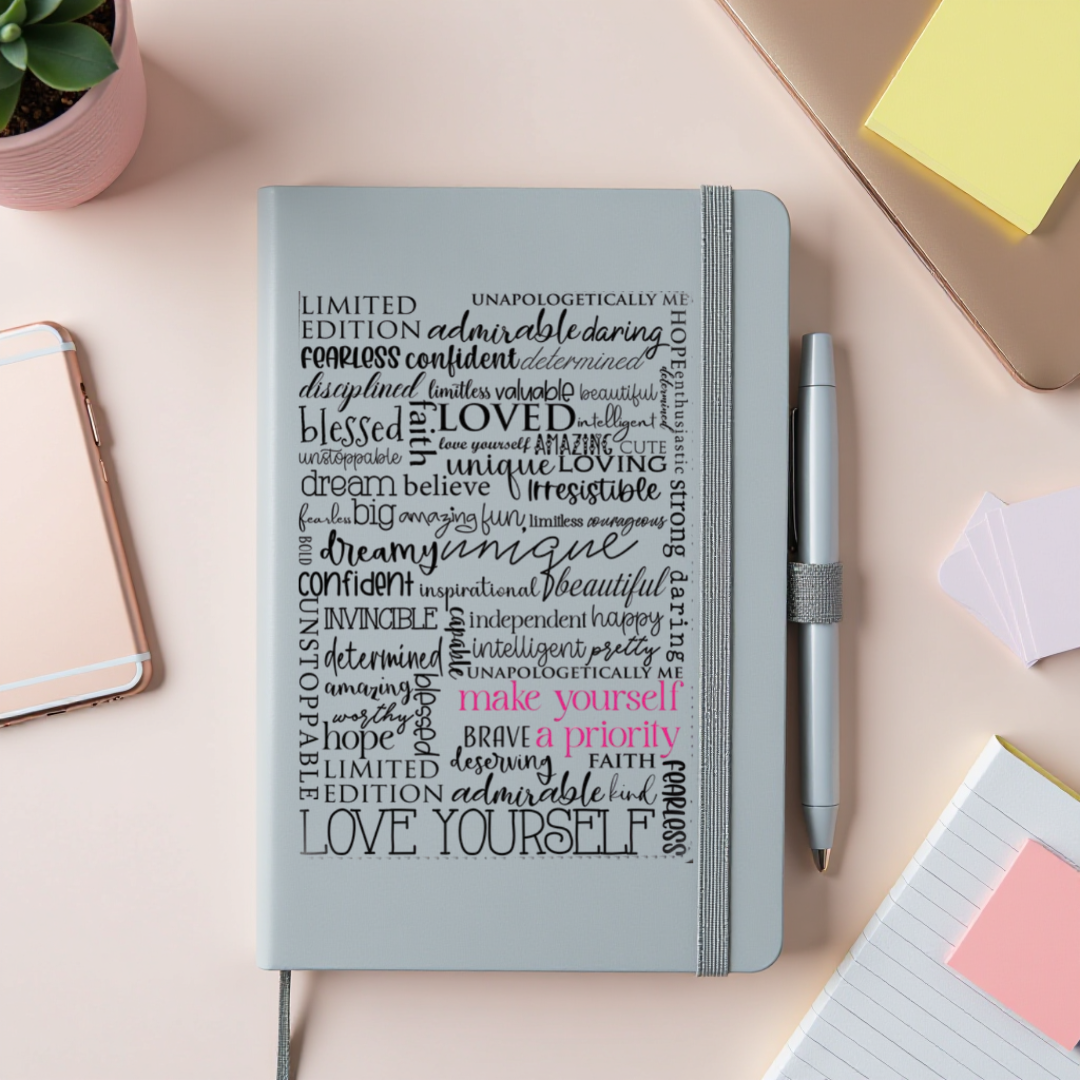 LIMITED UNAPOLOGETICALLY ME
EDITION admirable daring
HOPE
fearless confident determined
enthusiastic
disciplined limitless valuable beautiful
determined
blessed faith LOVED intelligent
love yourself AMAZING CUTE
unstoppable unique LOVING
dream believe Irresistible
strong
fearless big amazing fun limitless courageous
BOLD dreamy unique
confident inspirational beautiful
daring
UNSTOPPABLE
INVINCIBLE capable independent happy
determined intelligent pretty
UNAPOLOGETICALLY ME
amazing blessed make yourself
worthy
hope BRAVE a priority
deserving FAITH
LIMITED
fearless
EDITION admirable kind
LOVE YOURSELF